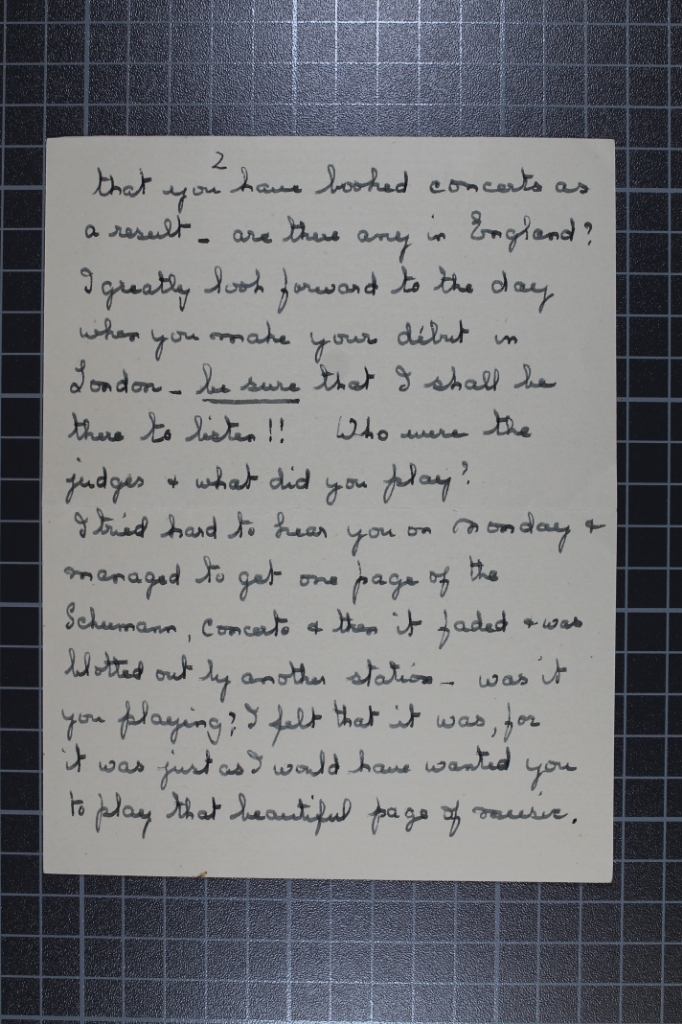 2
that you have booked concerts as
a result - are there any in England?
I greatly look forward to the day
when you make your début in
London - be sure that I shall be
there to listen!! Who were the
judges & what did you play?
I tried hard to hear you on Monday &
managed to get one page of the
Schumann, Concerto & then it faded & was
blotted out by another station - was it
you playing? I felt that it was, for
it was just as I would have wanted you
to play that beautiful page of music.